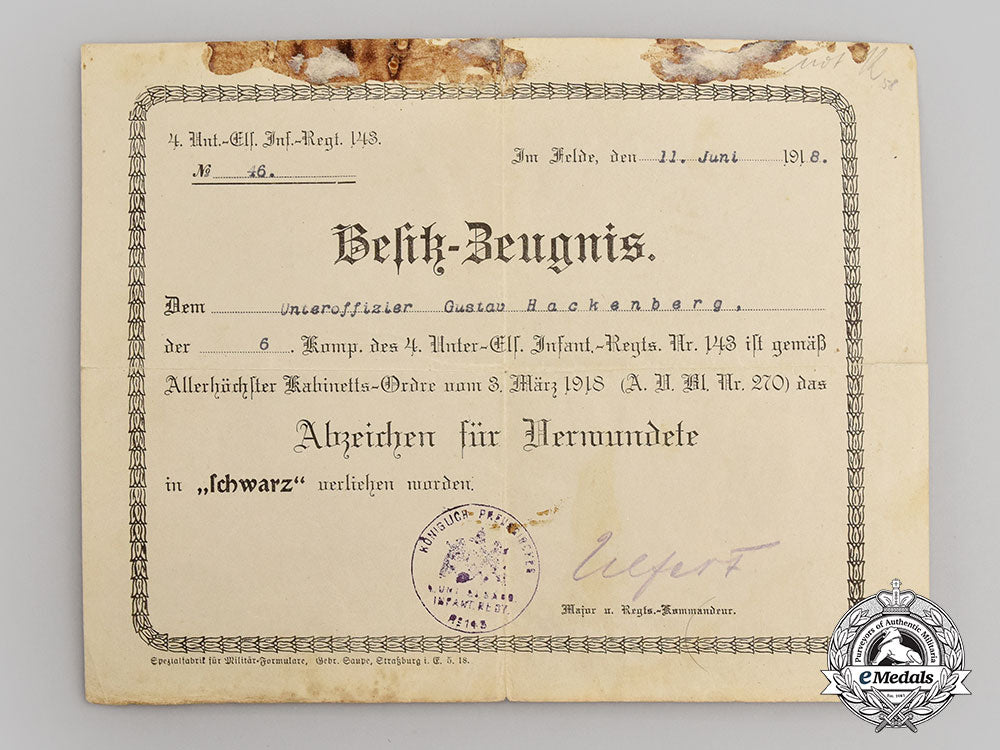 4. Unt.-Els. Inf.-Regt. 143.
№ 46.
Im Felde, den 11. Juni 1918.
Besitz-Zeugnis.
Dem Unteroffizier Gustav Hackenberg,
der 6. Komp. des 4. Unter-Els. Infant.-Regts. Nr. 143 ist gemäß
Allerhöchster Kabinetts-Ordre vom 3. März 1918 (A. V. Bl. Nr. 270) das
Abzeichen für Verwundete
in „schwarz“ verliehen worden.
KÖNIGLICH PREUSSISCHES
4. UNT. ELSÄSS.
INFANT. REGT.
№ 143
Major u. Regts.-Kommandeur.
Spezialfabrik für Militär-Formulare, Gebr. Saupe, Straßburg i. E. 5. 18.
Purveyors of Authentic Militaria
eMedals